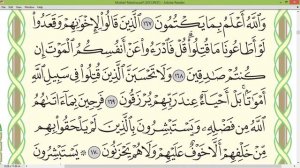 Mushaf Madinah.pdf (SECURED) - Adobe Reader
وَاللَّهُ أَعْلَمُ بِمَا يَكْتُمُونَ ١٦٧ الَّذِينَ قَالُوا لِإِخْوَانِهِمْ وَقَعَدُوا
لَوْ أَطَاعُونَا مَا قُتِلُوا قُلْ فَادْرَءُوا عَنْ أَنفُسِكُمُ الْمَوْتَ إِن
كُنتُمْ صَادِقِينَ ١٦٨ وَلَا تَحْسَبَنَّ الَّذِينَ قُتِلُوا فِي سَبِيلِ اللَّهِ
أَمْوَاتًا بَلْ أَحْيَاءٌ عِندَ رَبِّهِمْ يُرْزَقُونَ ١٦٩ فَرِحِينَ بِمَا آتَاهُمُ
اللَّهُ مِن فَضْلِهِ وَيَسْتَبْشِرُونَ بِالَّذِينَ لَمْ يَلْحَقُوا بِهِم
مِّنْ خَلْفِهِمْ أَلَّا خَوْفٌ عَلَيْهِمْ وَلَا هُمْ يَحْزَنُونَ ١٧٠